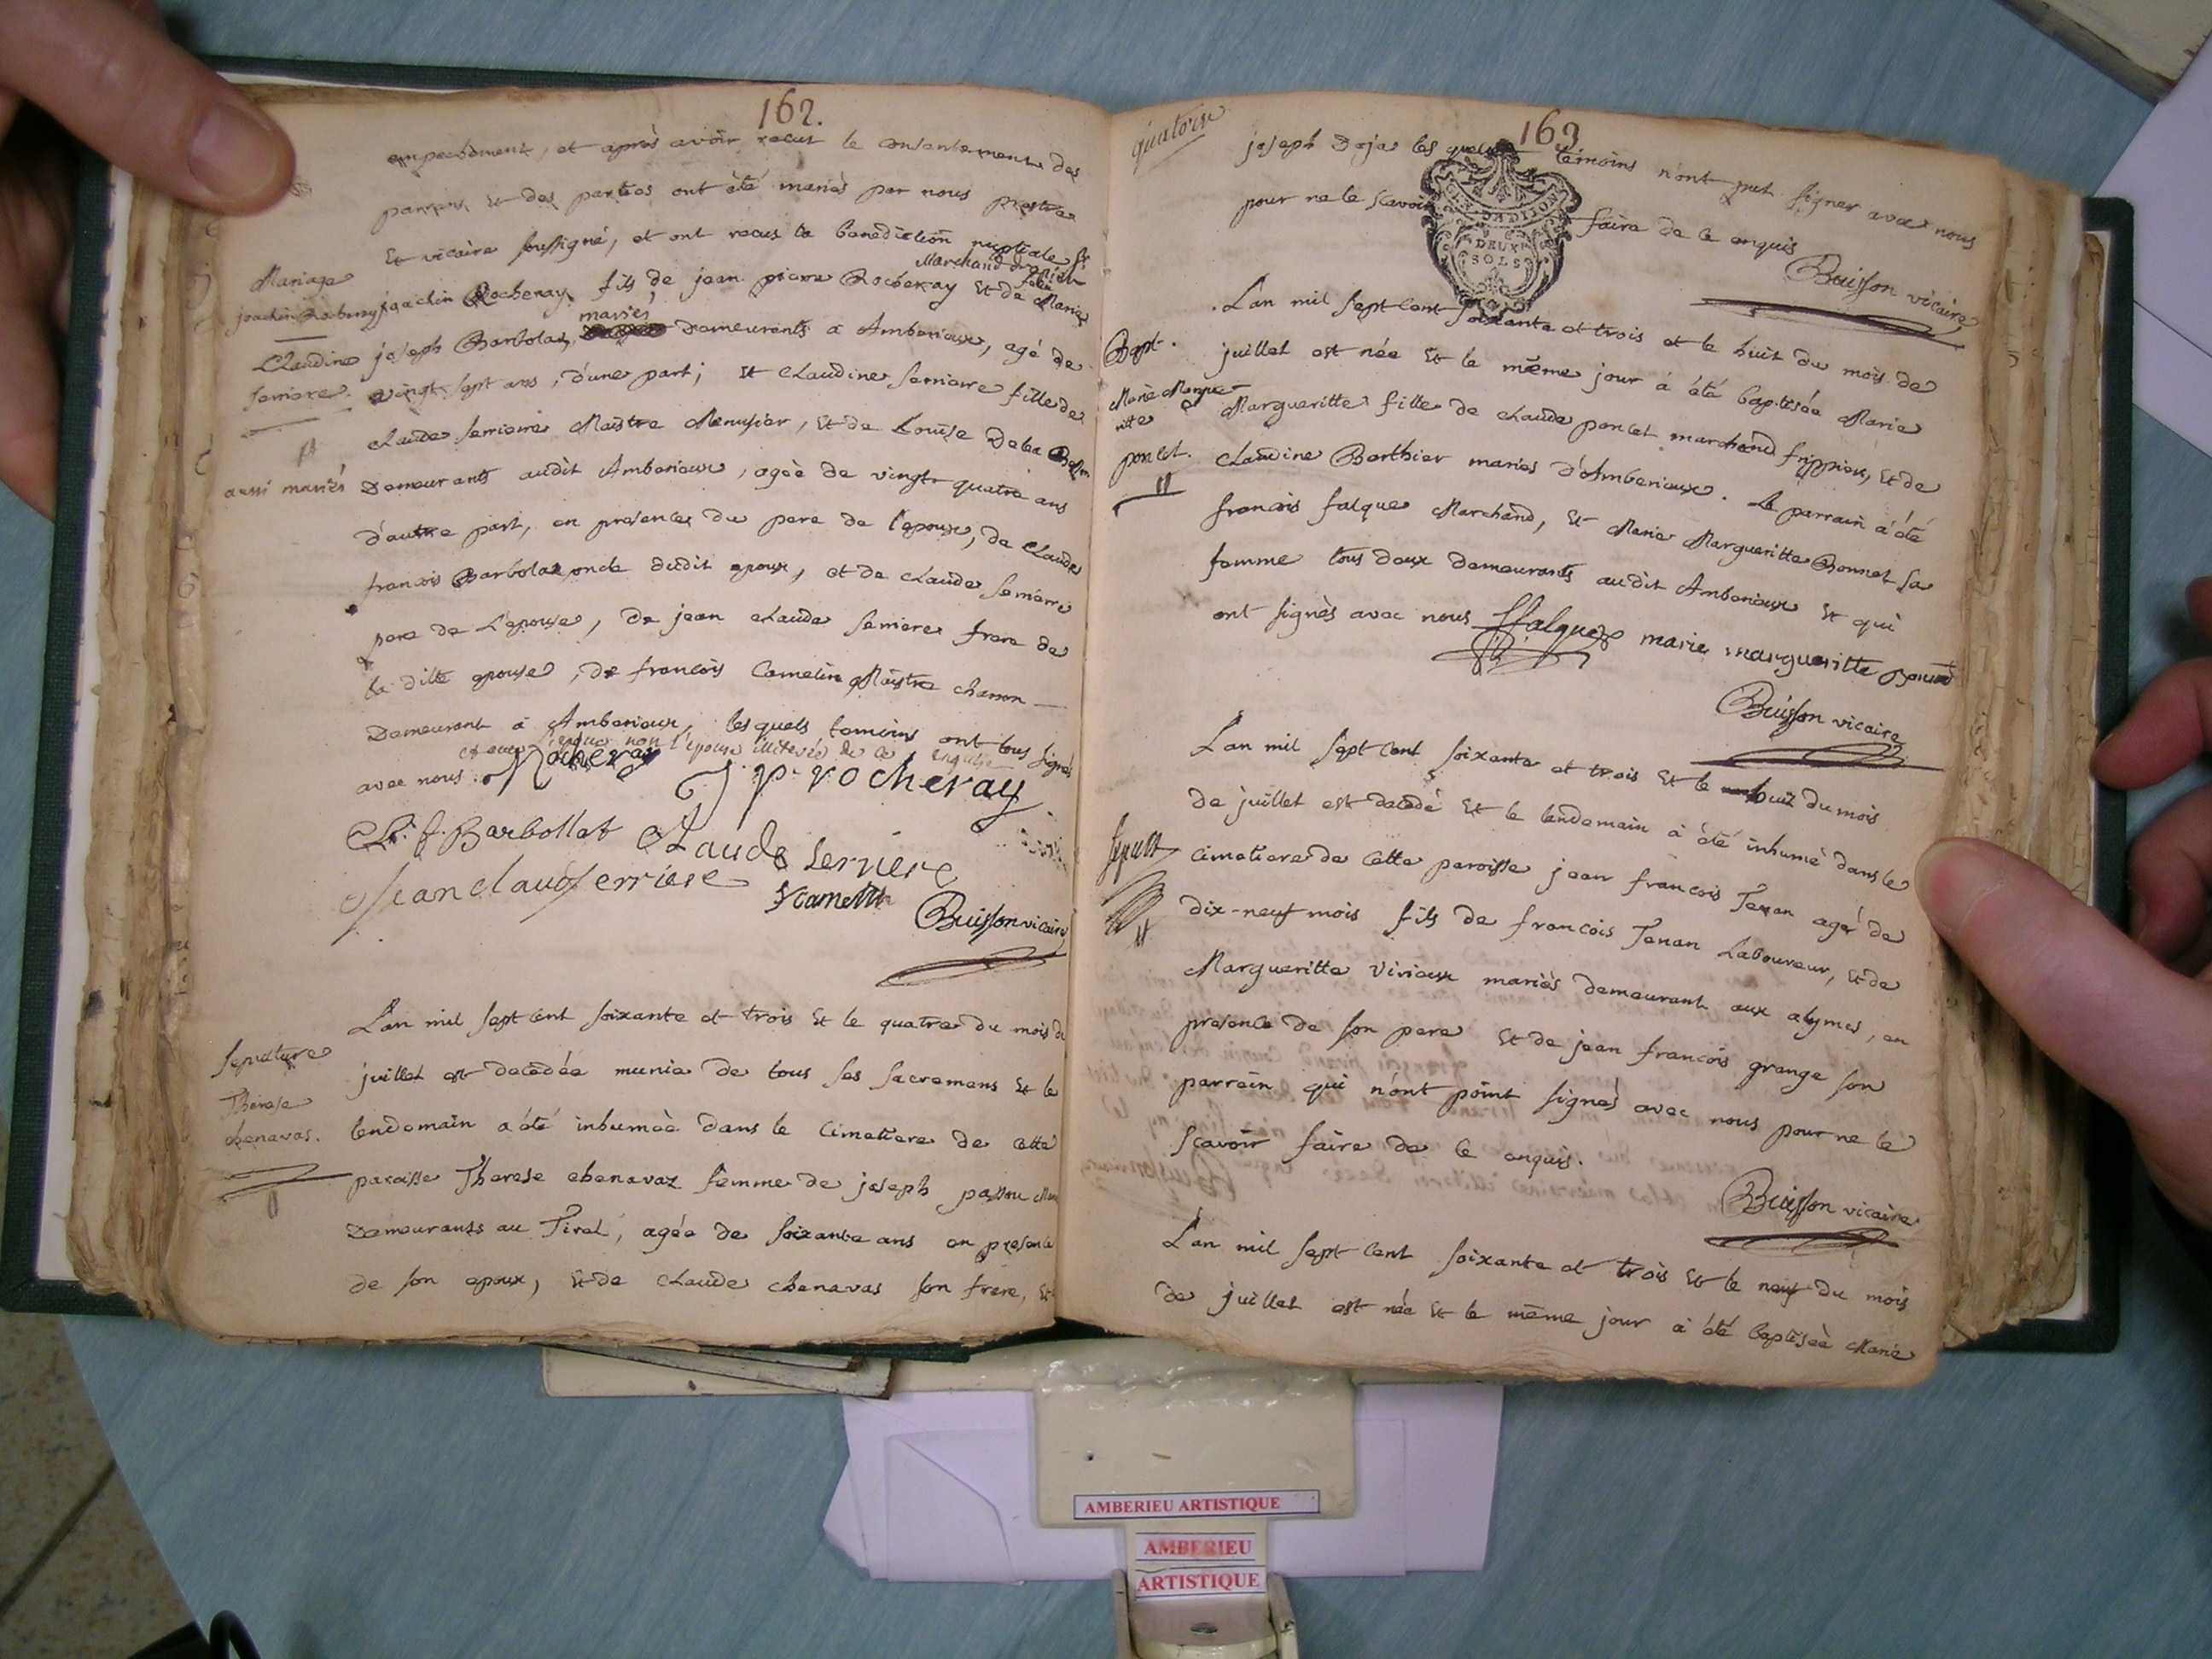 162.
empechement, et après avoir recut le consentement des
parens et des parties ont été mariés par nous prestre
Et vicaire soussigné, et ont recus la benediction nuptiale Sr
Marchand
joachin Rocheray fils de jean pierre Rocheray Et de Marie
mariés
joseph Barbolaz, Demeurants a Amberieux, agé de
vingt sept ans, d'une part; Et Claudine serriere fille de
claude serriere Maistre Menusier, Et de Louise Dela
Demeurants audit Amberieux, agée de vingt quatre ans
d'autre part, en presence du pere de l'epoux, de Claude
francois Barbolaz oncle dudit epoux, et de claude serriere
pere de L'epouse, de jean claude serriere frere de
la ditte epouse, de francois Camelin Maistre charron
Demeurant a Amberieux, lesquels temoins ont tous signé
et aussi l'epoux non l'epouse illiterée de ce enquise
avec nous. Rocheray J p rocheray
C. f. Barbollat Claude Serriere
Jean claud serriere
f camelin
Buisson vicaire
Mariage
joachin Rocheray
Claudine
serriere
aussi mariés
L'an mil sept cent soixante et trois Et le quatre du mois de
juillet est decedée munie de tous ses sacremens Et le
lendemain a été inhumée dans le cimetiere de cette
paroisse Therese chenavaz femme de joseph
Demeurants au Tiret, agée de soixante ans en presence
de son epoux, Et de claude chenavas son frere, Et
Sepulture
Therese
chenavas.
quatorze
163
joseph Deja les quels temoins n'ont put signer avec nous
pour ne le scavoir faire de ce enquis
GEN. D. DIJON
DEUX
SOLS
Buisson vicaire
L'an mil sept cent soixante et trois et le huit du mois de
juillet est née Et le même jour a été baptisée Marie
Margueritte fille de claude poncet marchand frippier, Et de
claudine Berthier mariés d'Amberieux. Le parrain a été
francois falque Marchand, Et Marie Margueritte Bonnet sa
femme tous deux demeurants audit Amberieux Et qui
ont signés avec nous ffalque marie margueritte
Buisson vicaire
Bapt.
Marie Margue
ritte
poncet.
L'an mil sept cent soixante et trois Et le huit du mois
de juillet est decedé Et le lendemain a été inhumé dans le
cimetiere de cette paroisse jean francois Tenan agé de
dix-neuf mois fils de francois Tenan Laboureur, Et de
Margueritte Virieux mariés demeurant aux alymes, en
presence de son pere Et de jean francois grange son
parrain qui n'ont point signés avec nous pour ne le
scavoir faire de ce enquis.
Buisson vicaire
Sepult
L'an mil sept cent soixante et trois Et le neuf du mois
de juillet est née Et le même jour a été baptisée Marie
AMBERIEU ARTISTIQUE
AMBERIEU
ARTISTIQUE